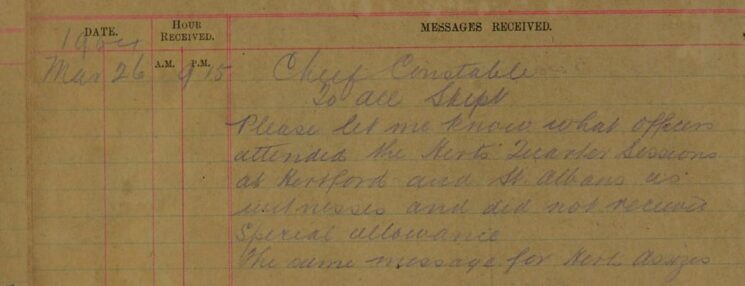 DATE. HOUR RECEIVED. MESSAGES RECEIVED.
A.M. P.M.
Mar 26 9 15 Chief Constable
To all Supt
Please let me know what officers
attended the Herts Quarter Sessions
at Hertford and St. Albans as
witnesses and did not receive
Special allowance
The same message for Herts Assizes